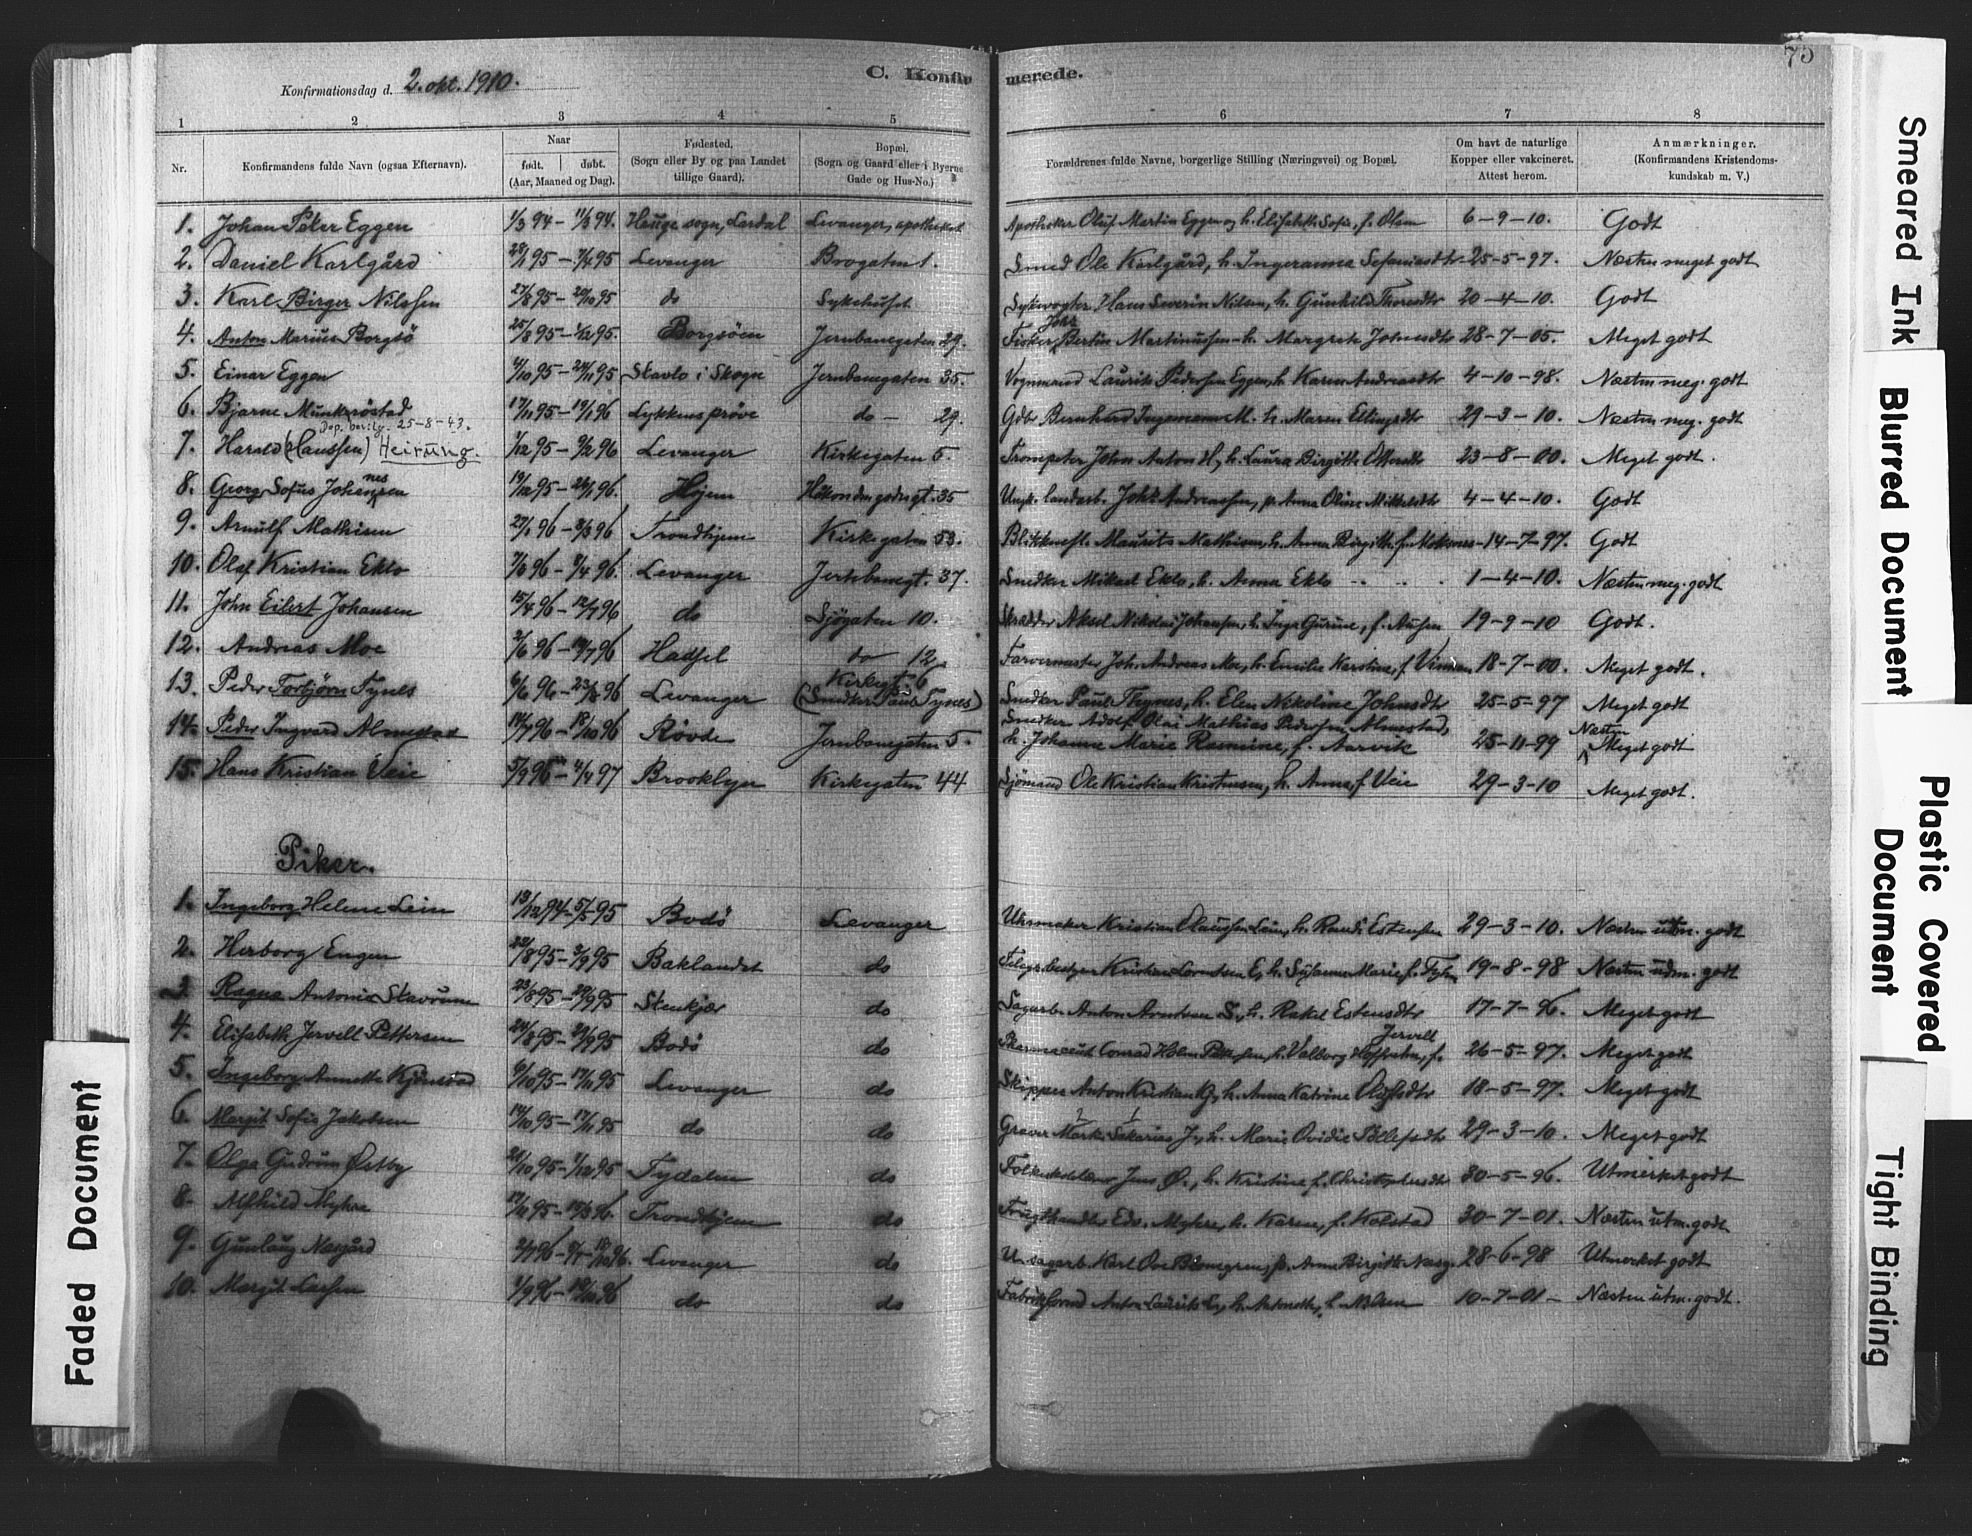 75
C. Konfirmerede.
Konfirmationsdag d. 2. okt. 1910.
1 2 3 4 5 6 7 8
Nr. Konfirmandens fulde Navn (ogsaa Efternavn). Naar født. døbt. (Aar, Maaned og Dag). Fødested. (Sogn eller By og paa Landet tillige Gaard). Bopæl. (Sogn og Gaard eller i Byerne Gade og Hus-No.) Forældrenes fulde Navne, borgerlige Stilling (Næringsvei) og Bopæl. Om havt de naturlige Kopper eller vakcineret. Attest herom. Anmærkninger. (Konfirmandens Kristendomskundskab m. V.)
1. Johan Peter Eggen 1/3 94 – 11/3 94. Hauge sogn, Lardal Levanger, apotheket Apotheker Oluf Martin Eggen og h. Elisabeth Sofie, f. Olsen 6-9-10. Godt
2. Daniel Karlgård 28/1 95 – 7/4 95 Levanger Brogaten 1. Smed Ole Karlgård, h. Ingeranna Sefaniasdtr 25-5-97. Næsten meget godt
3. Karl Birger Nilssen 27/8 95 – 20/10 95 do Sykehuset Sykevogter Hans Severin Nilsen, h. Gunhild Thoresdtr 20-4-10. Godt
4. Anton Marius Borgsö 25/8 95 – 1/12 95. Borgsöen Jernbanegaten 29. Fisker Joh. Bertin Martinussen – h. Margrete Johnsdtr 28-7-05. Meget godt
5. Einar Eggen 4/10 95 – 24/11 95 Stavlo i Skogn Jernbanegaten 35. Vognmand Laurits Pedersen Eggen, h. Karen Andreasdtr 4-10-98. Næsten meg. godt
6. Bjarne Munkrøstad 17/11 95 – 19/1 96 Lykkens prøve do – 29. Gdbr Bernhard Ingemann M. h. Maren Ellingsdtr 29-3-10. Næsten meg. godt
Dep. bevilg. 25-8-43.
7. Harald (Haussen) Heirung. 1/12 95 – 9/2 96 Levanger Kirkegaten 5. Trompeter John Anton H., h. Laura Birgitte Ottersdtr 23-8-00. Meget godt.
8. Georg Sofus Johannessen 19/12 95 – 26/1 96. Höjem 35 Ungk. landarb. Joh. Andreassen, p. Anna Oline Mikkelsdtr 4-4-10. Godt
9. Arnulf Mathisen 27/1 96 – 8/3 96 Trondhjem Kirkegaten 53. Maurits Mathisen, h. Anna Birgitte f. 14-7-97. Godt
10. Olaf Kristian Eklo 7/3 96 – 5/4 96. Levanger Jernbanegt. 37. Snedker Mikael Eklo, h. Anna Eklo 1-4-10. Næsten meg. godt
11. John Eilert Johansen 15/4 96 – 12/7 96 do Sjøgaten 10. Skrædder Aksel Nikolai Johansen, h. Inga Gurine, f. 19-9-10 Godt.
12. Andreas Moe 2/6 96 – 19/7 96 Hadsel do 12. Farvermester Joh. Andreas Moe, h. Emilie Karstine, f. 18-7-00. Meget godt.
13. Peder Torbjørn Tynes 6/6 96 – 23/8 96 Levanger Kirkegt. 6 (Snedker Paul Tynes) Snedker Paul Thynes, h. Elen Nikoline Johnsdtr 25-5-97 Meget godt
14. Peder Ingvard Almestad 14/7 96 – 18/10 96 Rövde Jernbanegaten 5. Snedker Adolf Olai Mathias Pedersen Almestad, h. Johanne Marie Rasmine, f. Aarvik 25-11-99 Næsten Meget godt
15. Hans Kristian Veie 5/9 96 – 4/4 97 Brooklyn Kirkegaten 44 Sjömand Ole Kristian Kristensen, h. Anna, f. Veie 29-3-10 Meget godt.
Piker.
1. Ingeborg Helene Lein 13/12 94 – 5/5 95 Bodö Levanger Uhrmaker Kristian Olaussen Lein, h. Randi Estensen 29-3-10. Næsten utm. godt
2. Herborg Engen 22/8 95 – 2/9 95 Baklandet do Kristian Lorntsen E., h. Susanna Marie f. 19-8-98 Næsten udm. godt
3. Ragna Antonie Stavrum 23/8 95 – 29/9 95 Stenkjær do Sagarb. Anton Arntsen S., h. Rakel Estensdtr 17-7-96. Meget godt
4. Elisabeth Jervell Pettersen 24/8 95 – 29/9 95 Bodö do Pharmaceut Conrad Holm Pettersen, h. Valborg f. Jervell 26-5-97. Meget godt
5. Ingeborg Annette 6/10 95 – 17/11 95 Levanger do Skipper Anton Kristian h. Anna Katrine Olafsdtr 18-5-97. Meget godt
6. Margit Sofie Jakobsen 14/10 95 – 17/11 95 do do Graver Mark. 2 Sakarias 1 J., h. Marie Ovidie 29-3-10. Meget godt
7. Olga Gudrun Østby 20/10 95 – 1/12 95 Tydalen do Folkeskolelærer Jens Ø., h. Kristine f. 30-5-96. Utmerket godt
8. Alfhild Myhre 17/11 95 – 19/3 96. Trondhjem do Frugthandler Edv. Myhre, h. Karen, f. Kolstad 30-7-01. Næsten utm. godt
9. Gunlaug Næsgård 2/7 96 – 18/10 96. Levanger do U. sagarb. Karl Ove p. Anna Birgitte Næsg. 28-6-98 Utmerket godt
10. Margit Larsen 1/9 96 – 19/10 96 do do Anton Laurits L., h. f. Nilsen 10-7-01 – Næsten utm. godt.
Smeared Ink
Blurred Document
Plastic Covered Document
Tight Binding
Faded Document